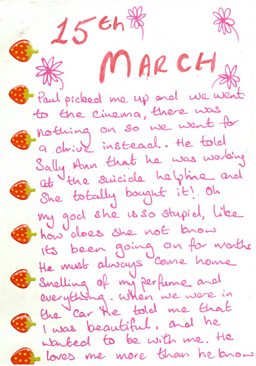 15th
MARCH
Paul picked me up and we went
to the cinema, there was
nothing on so we went for
a drive instead. He told
Sally Ann that he was working
at the suicide helpline and
She totally bought it! Oh
my god she is so stupid, like
how does she not know
its been going on for months
He must always come home
smelling of my perfume and
everything. When we were in
the car he told me that
I was beautiful, and he
wanted to be with me. He
loves me more than he know